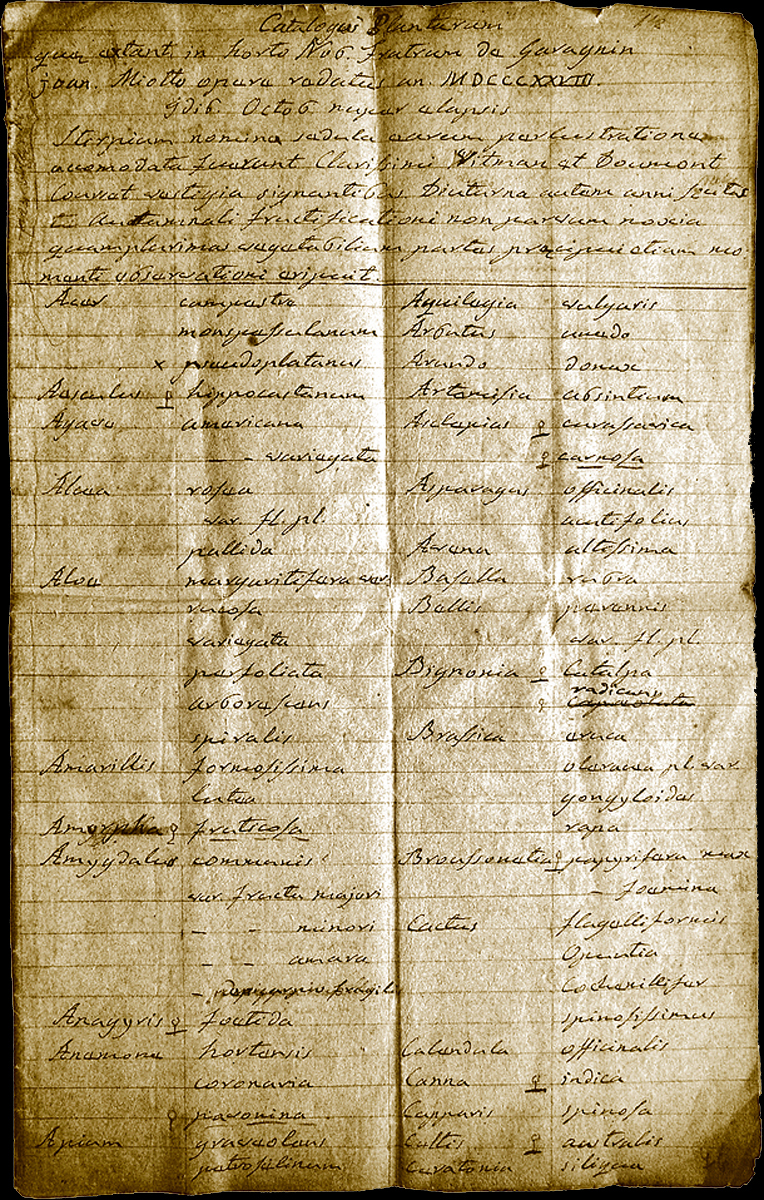 Catalogus Plantarum
quae extant in horto Nob. Fratrum de Garagnin
joan. Miotto opera redatus an. MDCCCXXVIII.
9dib. Octob nuper elapsis
Stirpium nomina sedula earum perlustratione
acomodata fuerunt Clarissimi Vitman et Doumont
Courset vestigia signantibus Diuturna autem anni
et Autumnali fructificationi non parvum noxia
quamplurimas vegetabilium partes praecipui etiam mo-
menti observationi eripuit.
Acer campestre
monspessulanum
x pseudoplatanus
Aesculus ♀ hippocastanum
Agave americana
— - variegata
Alcea rosea
var. fl. pl.
pallida
Aloe margaritifera var.
rucosa
variegata
perfoliata
arborescens
spiralis
Amarillis formosissima
lutea
Amorpha ♀ fruticosa
Amygdalus communis
var. fructu majori
- - minori
- - amara
- fragili
Anagyris ♀ foetida
Anemone hortensis
coronaria
♀ pavonina
Apium graveolens
petroselinum
Aquilegia vulgaris
Arbutus unedo
Arundo donax
Artemisia absintium
Asclepias ♀ curassavica
♀ carnosa
Asparagus officinalis
acutifolius
Avena altissima
Basella rubra
Bellis perennis
var. fl. pl.
Bignonia ♀ Catalpa
radicans
♀ capreolata
Brassica eruca
oleracea pl. var.
gongyloides
rapa
Broussonetia ♀ papyrifera mas
- foemina
Cactus flagelliformis
Opuntia
Cochenillifer
spinosissimus
Calendula officinalis
Canna ♀ indica
Capparis spinosa
Celtis ♀ australis
Ceratonia siliqua